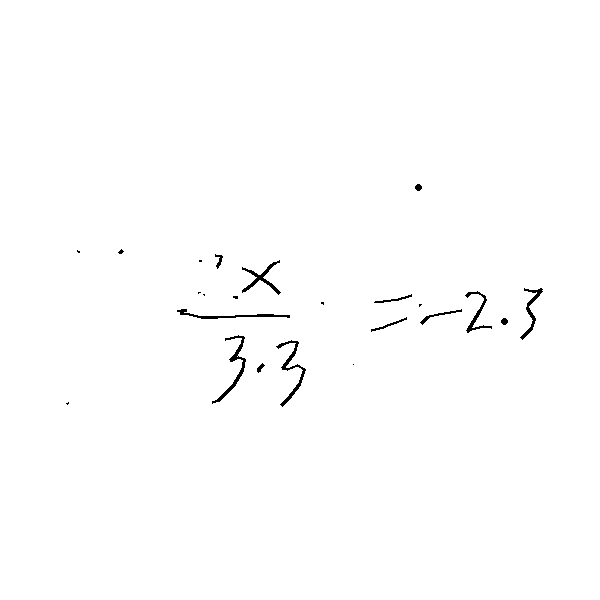 x
3.3
= -2.3